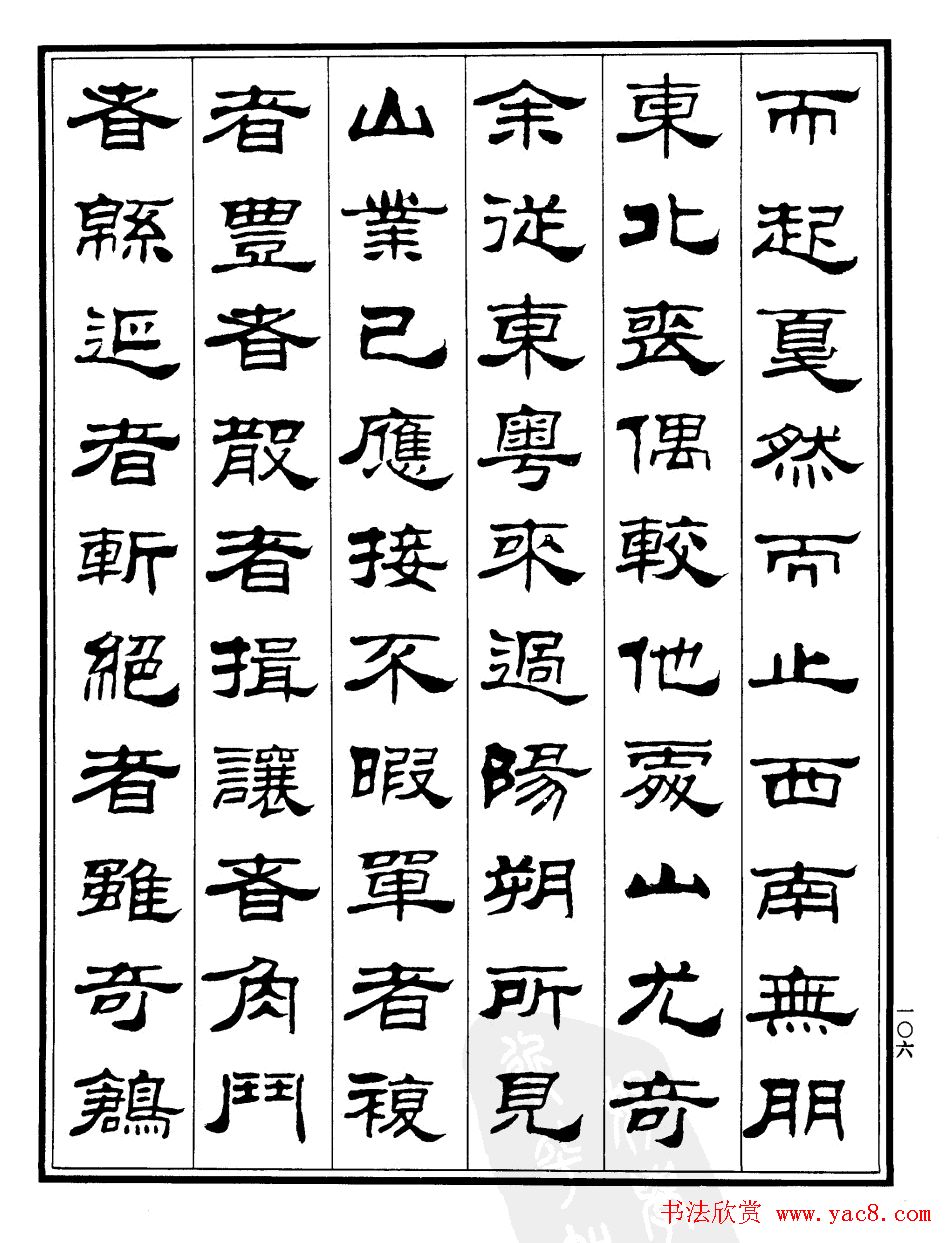 而起戛然而止西南無朋
東北喪偶較他處山尤奇
余從東粵來過陽朔所見
山業已應接不暇單者複
者豐者散者揖讓者角鬥
者緜延者斬絕者雖奇鶬
一〇六
书法欣赏 www.yac8.com